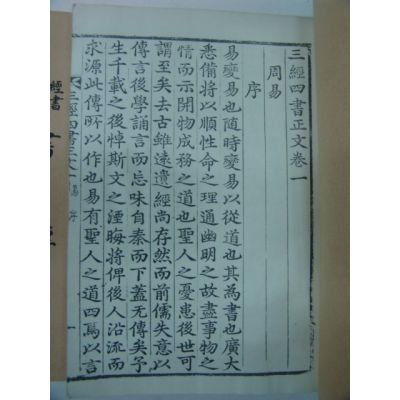 三經四書正文卷一
周易
序
易變易也隨時變易以從道也其為書也廣大
悉備將以順性命之理通幽明之故盡事物之
情而示開物成務之道也聖人之憂患後世可
謂至矣去古雖遠遺經尚存然而前儒失意以
傳言後學誦言而忘味自秦而下蓋無傳矣予
生千載之後悼斯文之湮晦將俾後人沿流而
求源此傳所以作也易有聖人之道四焉以言
三經四書正文 易 序 一
經書